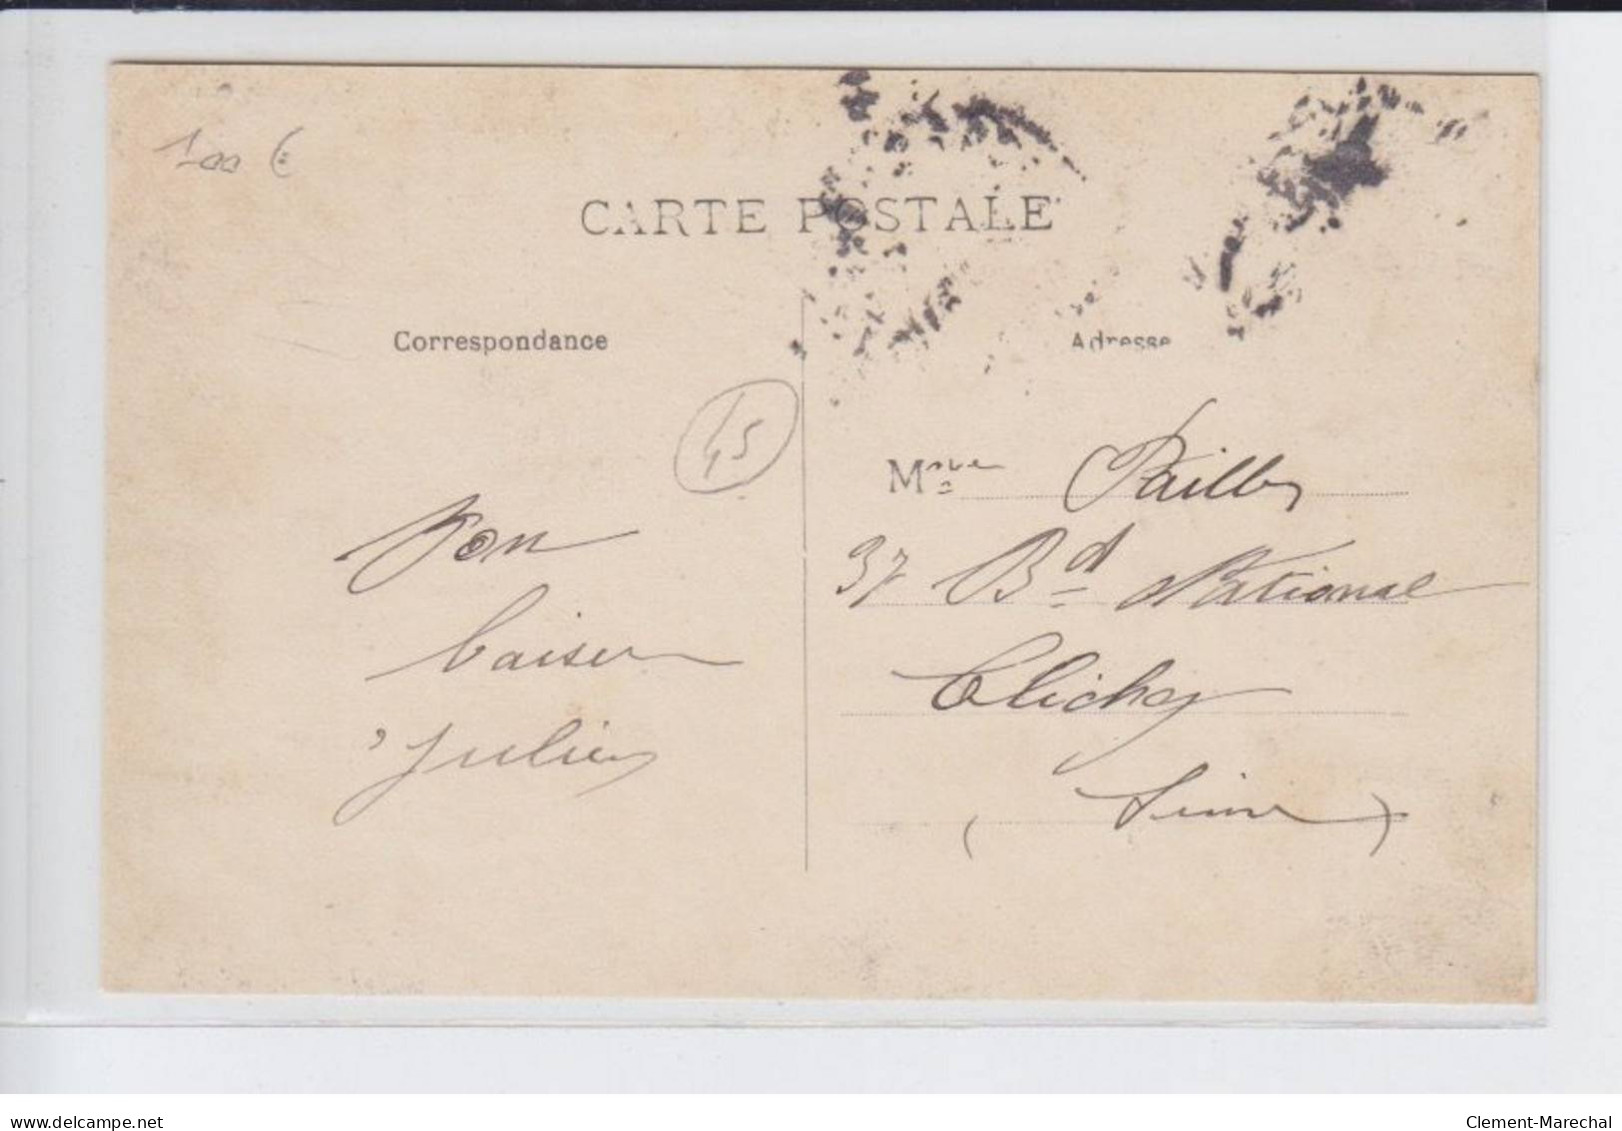 100 €
CARTE POSTALE
Correspondance
Adresse
45
Bon
baiser
Julien
Mme
37 Bd National
Clichy
(Seine)
Clement-Marechal